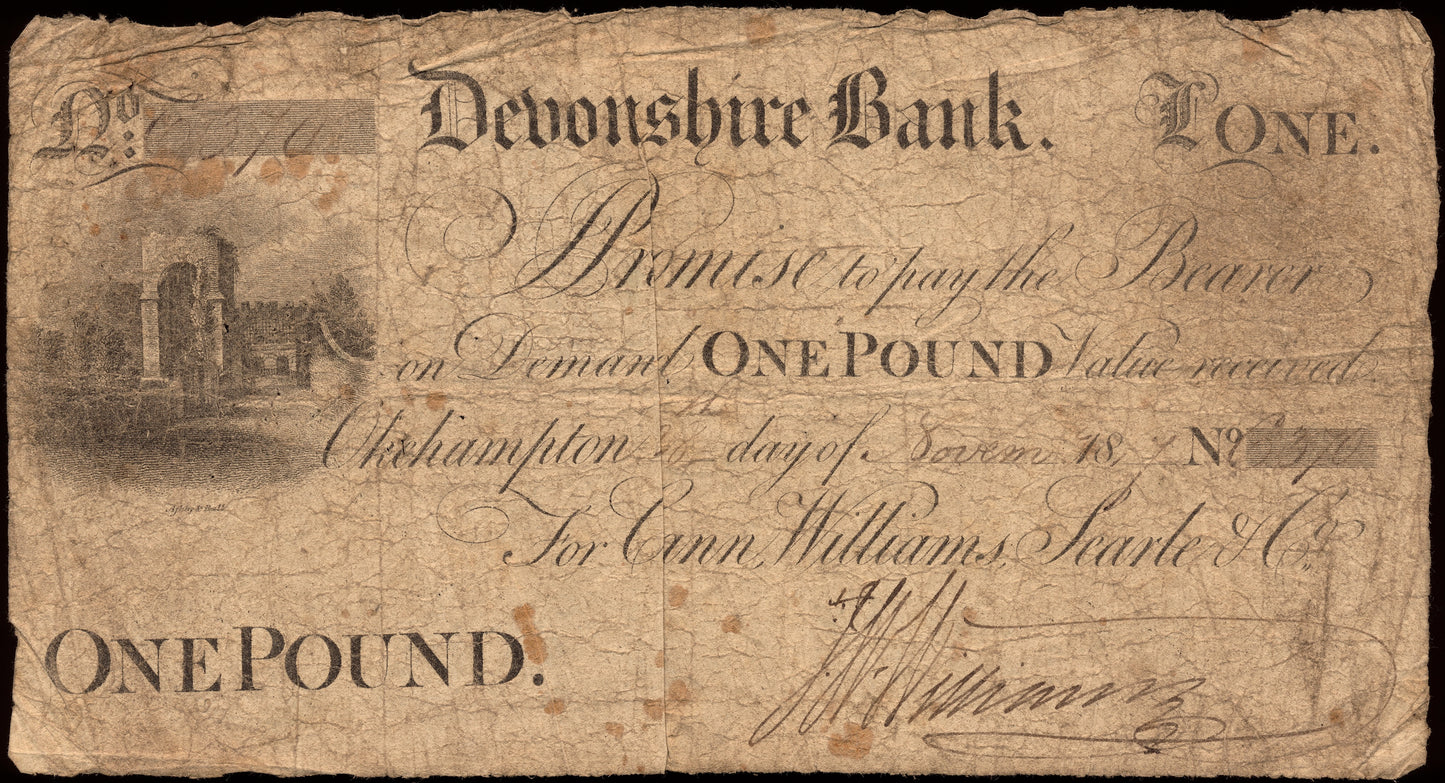 No:
Devonshire Bank.
£ ONE.
I Promise to pay the Bearer
on Demand ONE POUND Value received.
Okehampton day of Novem 18 7 No 370
For Cann, Williams, Searle & Co.
Ashby & Ball
ONE POUND.
Williams